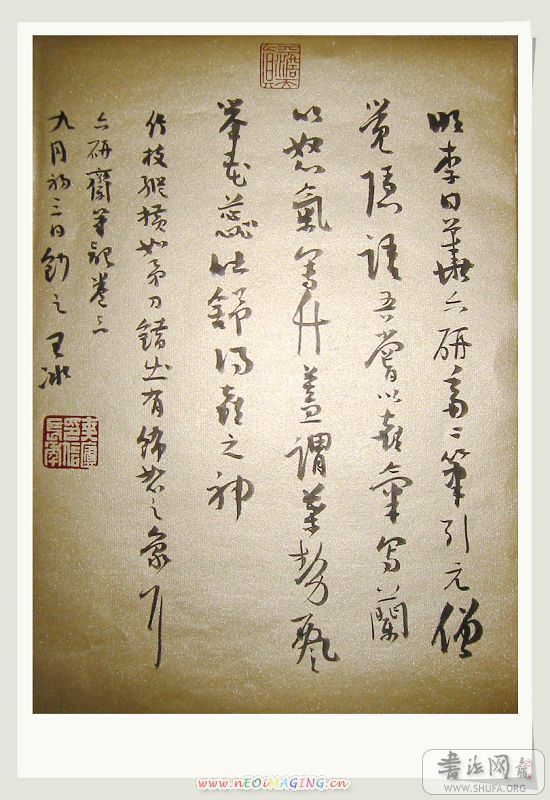 明李日華六研齋二筆引元僧
覺隱語吾嘗以喜氣寫蘭
以怒氣寫竹蓋謂葉勢飄
舉花蕊吐舒得喜之神
竹枝縱橫如矛刃錯出有飾怒之象耳
六研齋筆記卷三
九月初三日
书法网
WWW.SHUFA.ORG
www.nEOiMAGING.cn